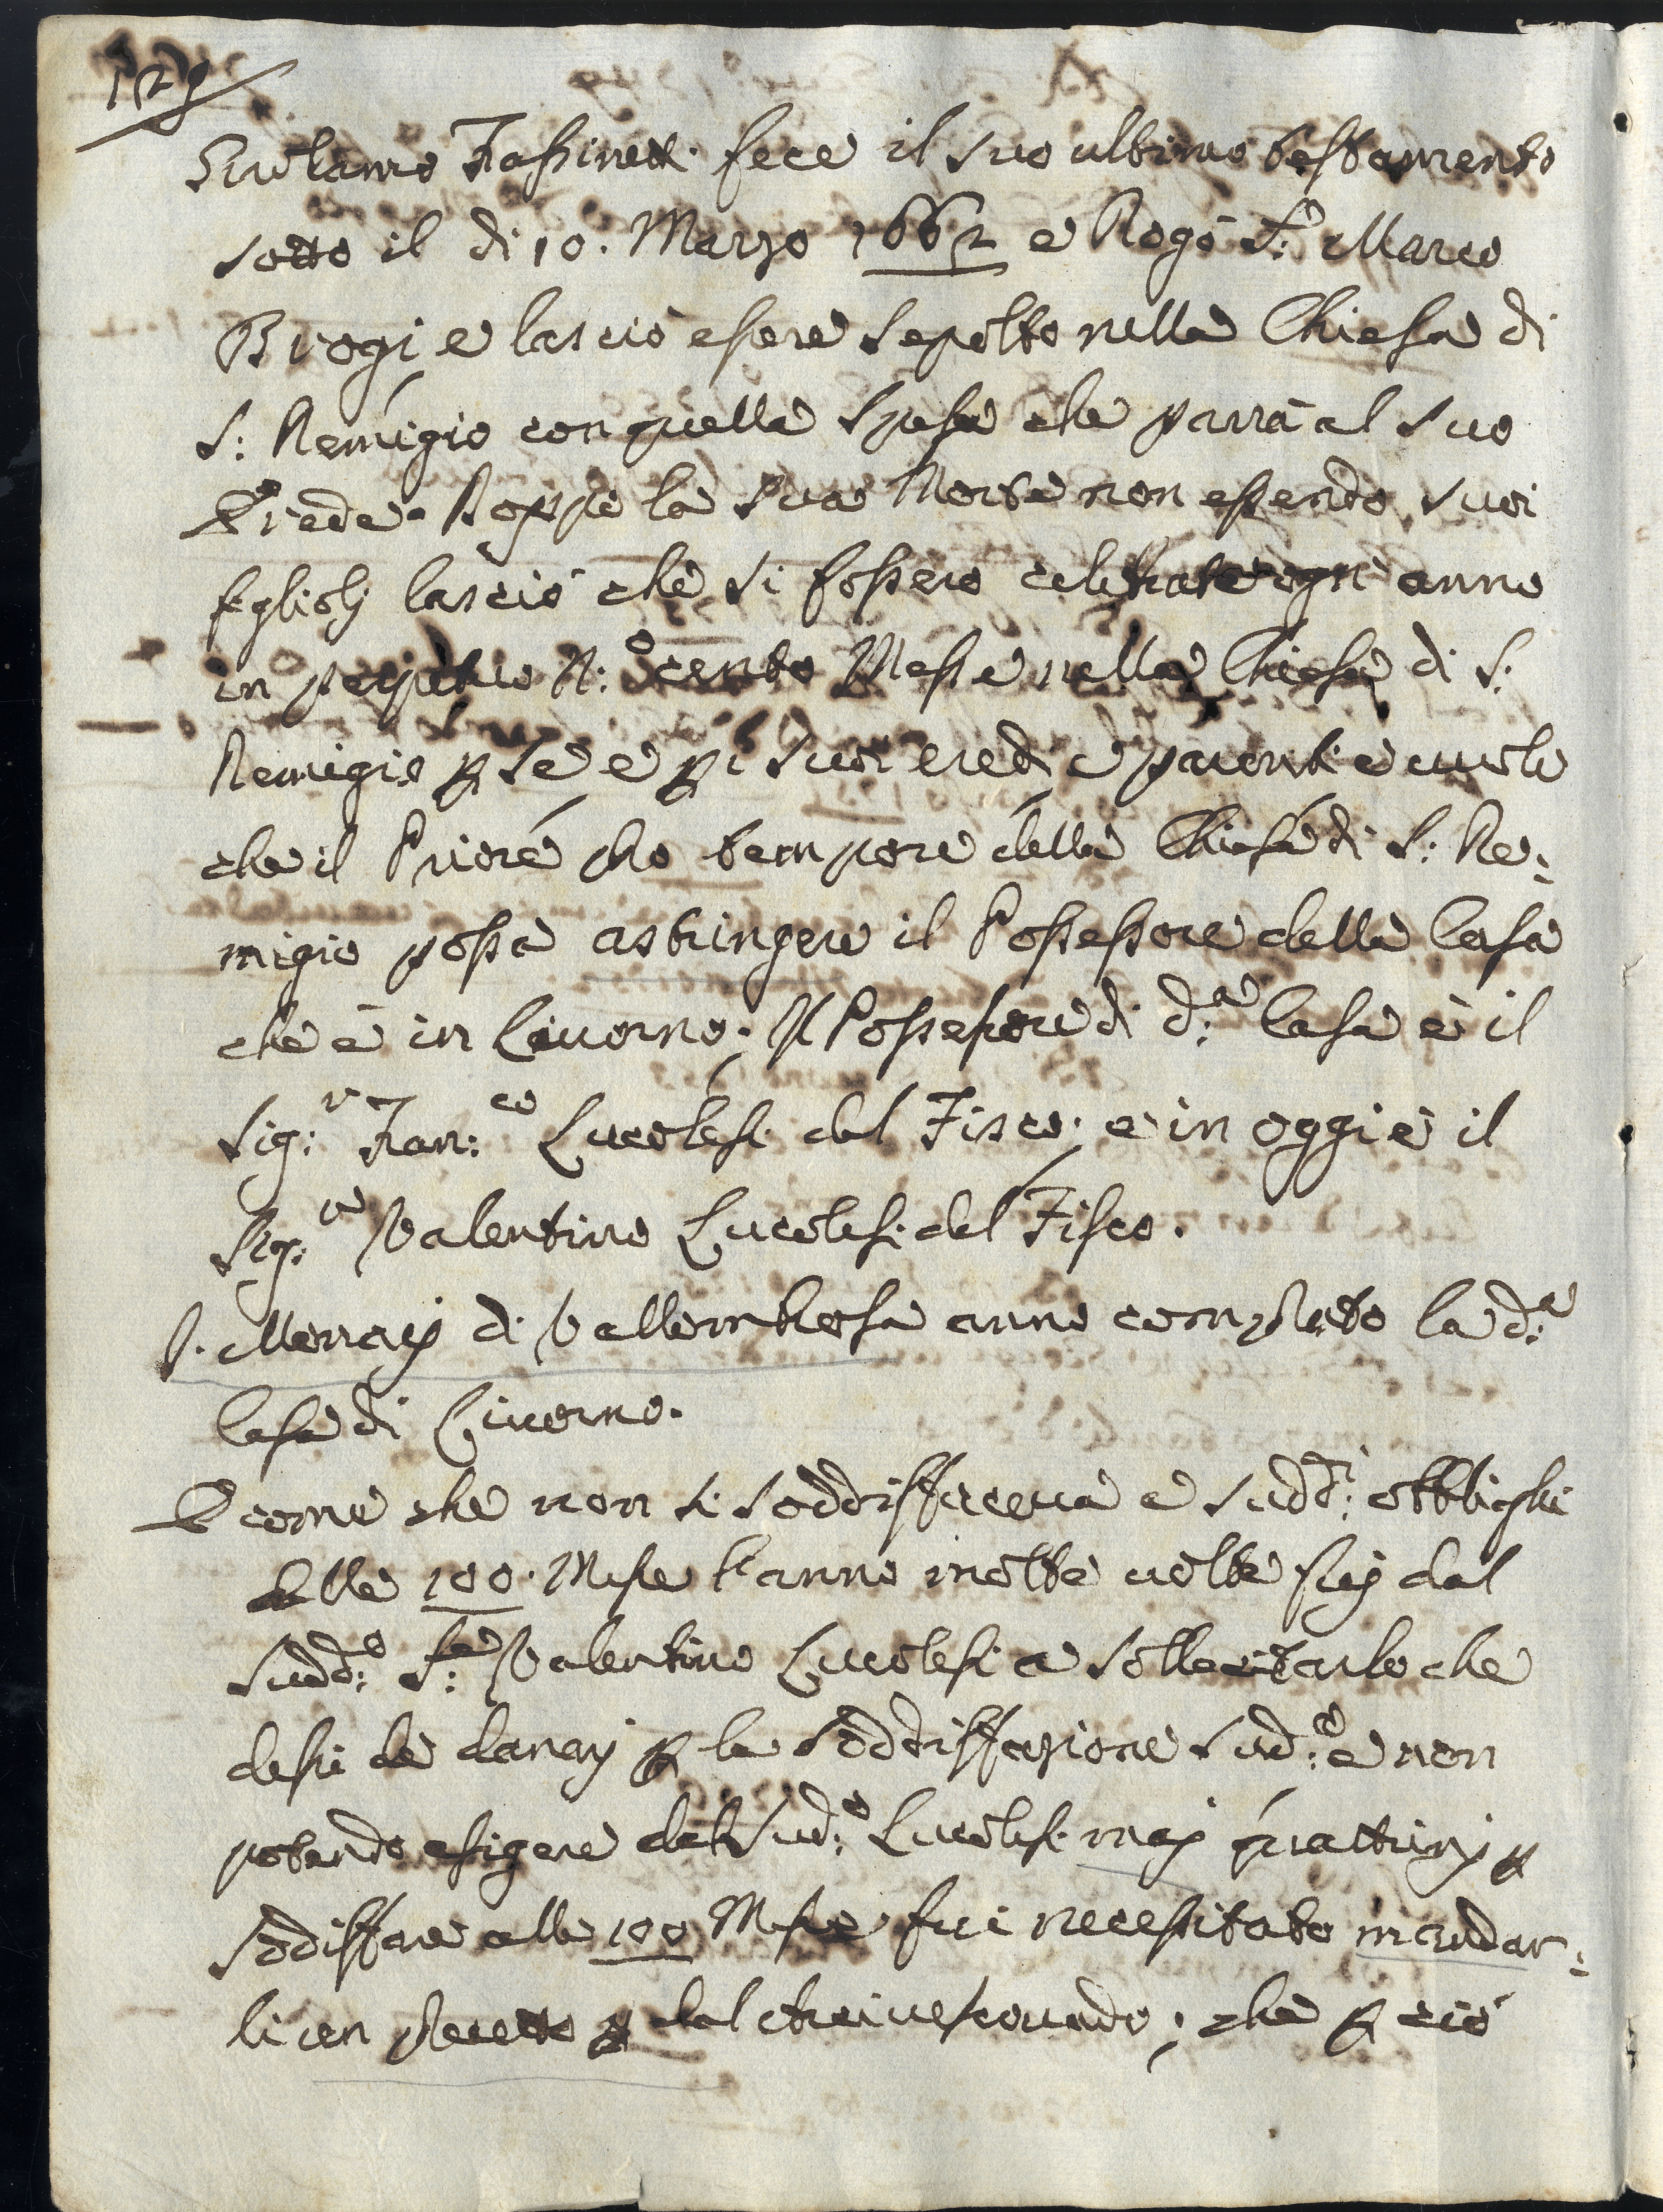 129
Girolamo Fassinett. fece il suo ultimo testamento
sotto il di 10. Marzo 1662 e Rogò S.r Marco
Brogi e lasciò essere sepolto nella Chiesa di
S: Remigio con quella spesa che parrà al suo
Erede. Doppo la sua Morte non essendo suoi
figlioli lasciò che si fossero celebrate ogni anno
in perpetuo N:o cento Messe nella Chiesa di S:
Remigio p se e p i suoi eredi e parenti e vuole
che il Priore pro tempore della Chiesa di S: Re:
migio possa astringere il Possessore della Casa
che è in Livorno. Il Possessore di d:a Casa è il
Sig:r Fran:co Lucolesi dal Fisco; e in oggi è il
Sig:re Valentino Lucolesi dal Fisco.
P. Monaci di Vallombrosa anno comprato la d:a
Casa di Livorno.
E come che non si soddisfaceva a sudd:i obblighi
delle 100. Messe l'anno molte volte fui dal
sudd:o S:re Valentino Lucolesi a sollecitarlo che
dessi de danari p la soddisfazione sud:a e non
potendo esigere dal sud:o Lucolesi mai quattrini p
sodisfare alle 100 Messe fui necessitato mandar:
li un precetto p dal Arcivescovado; che p ciò